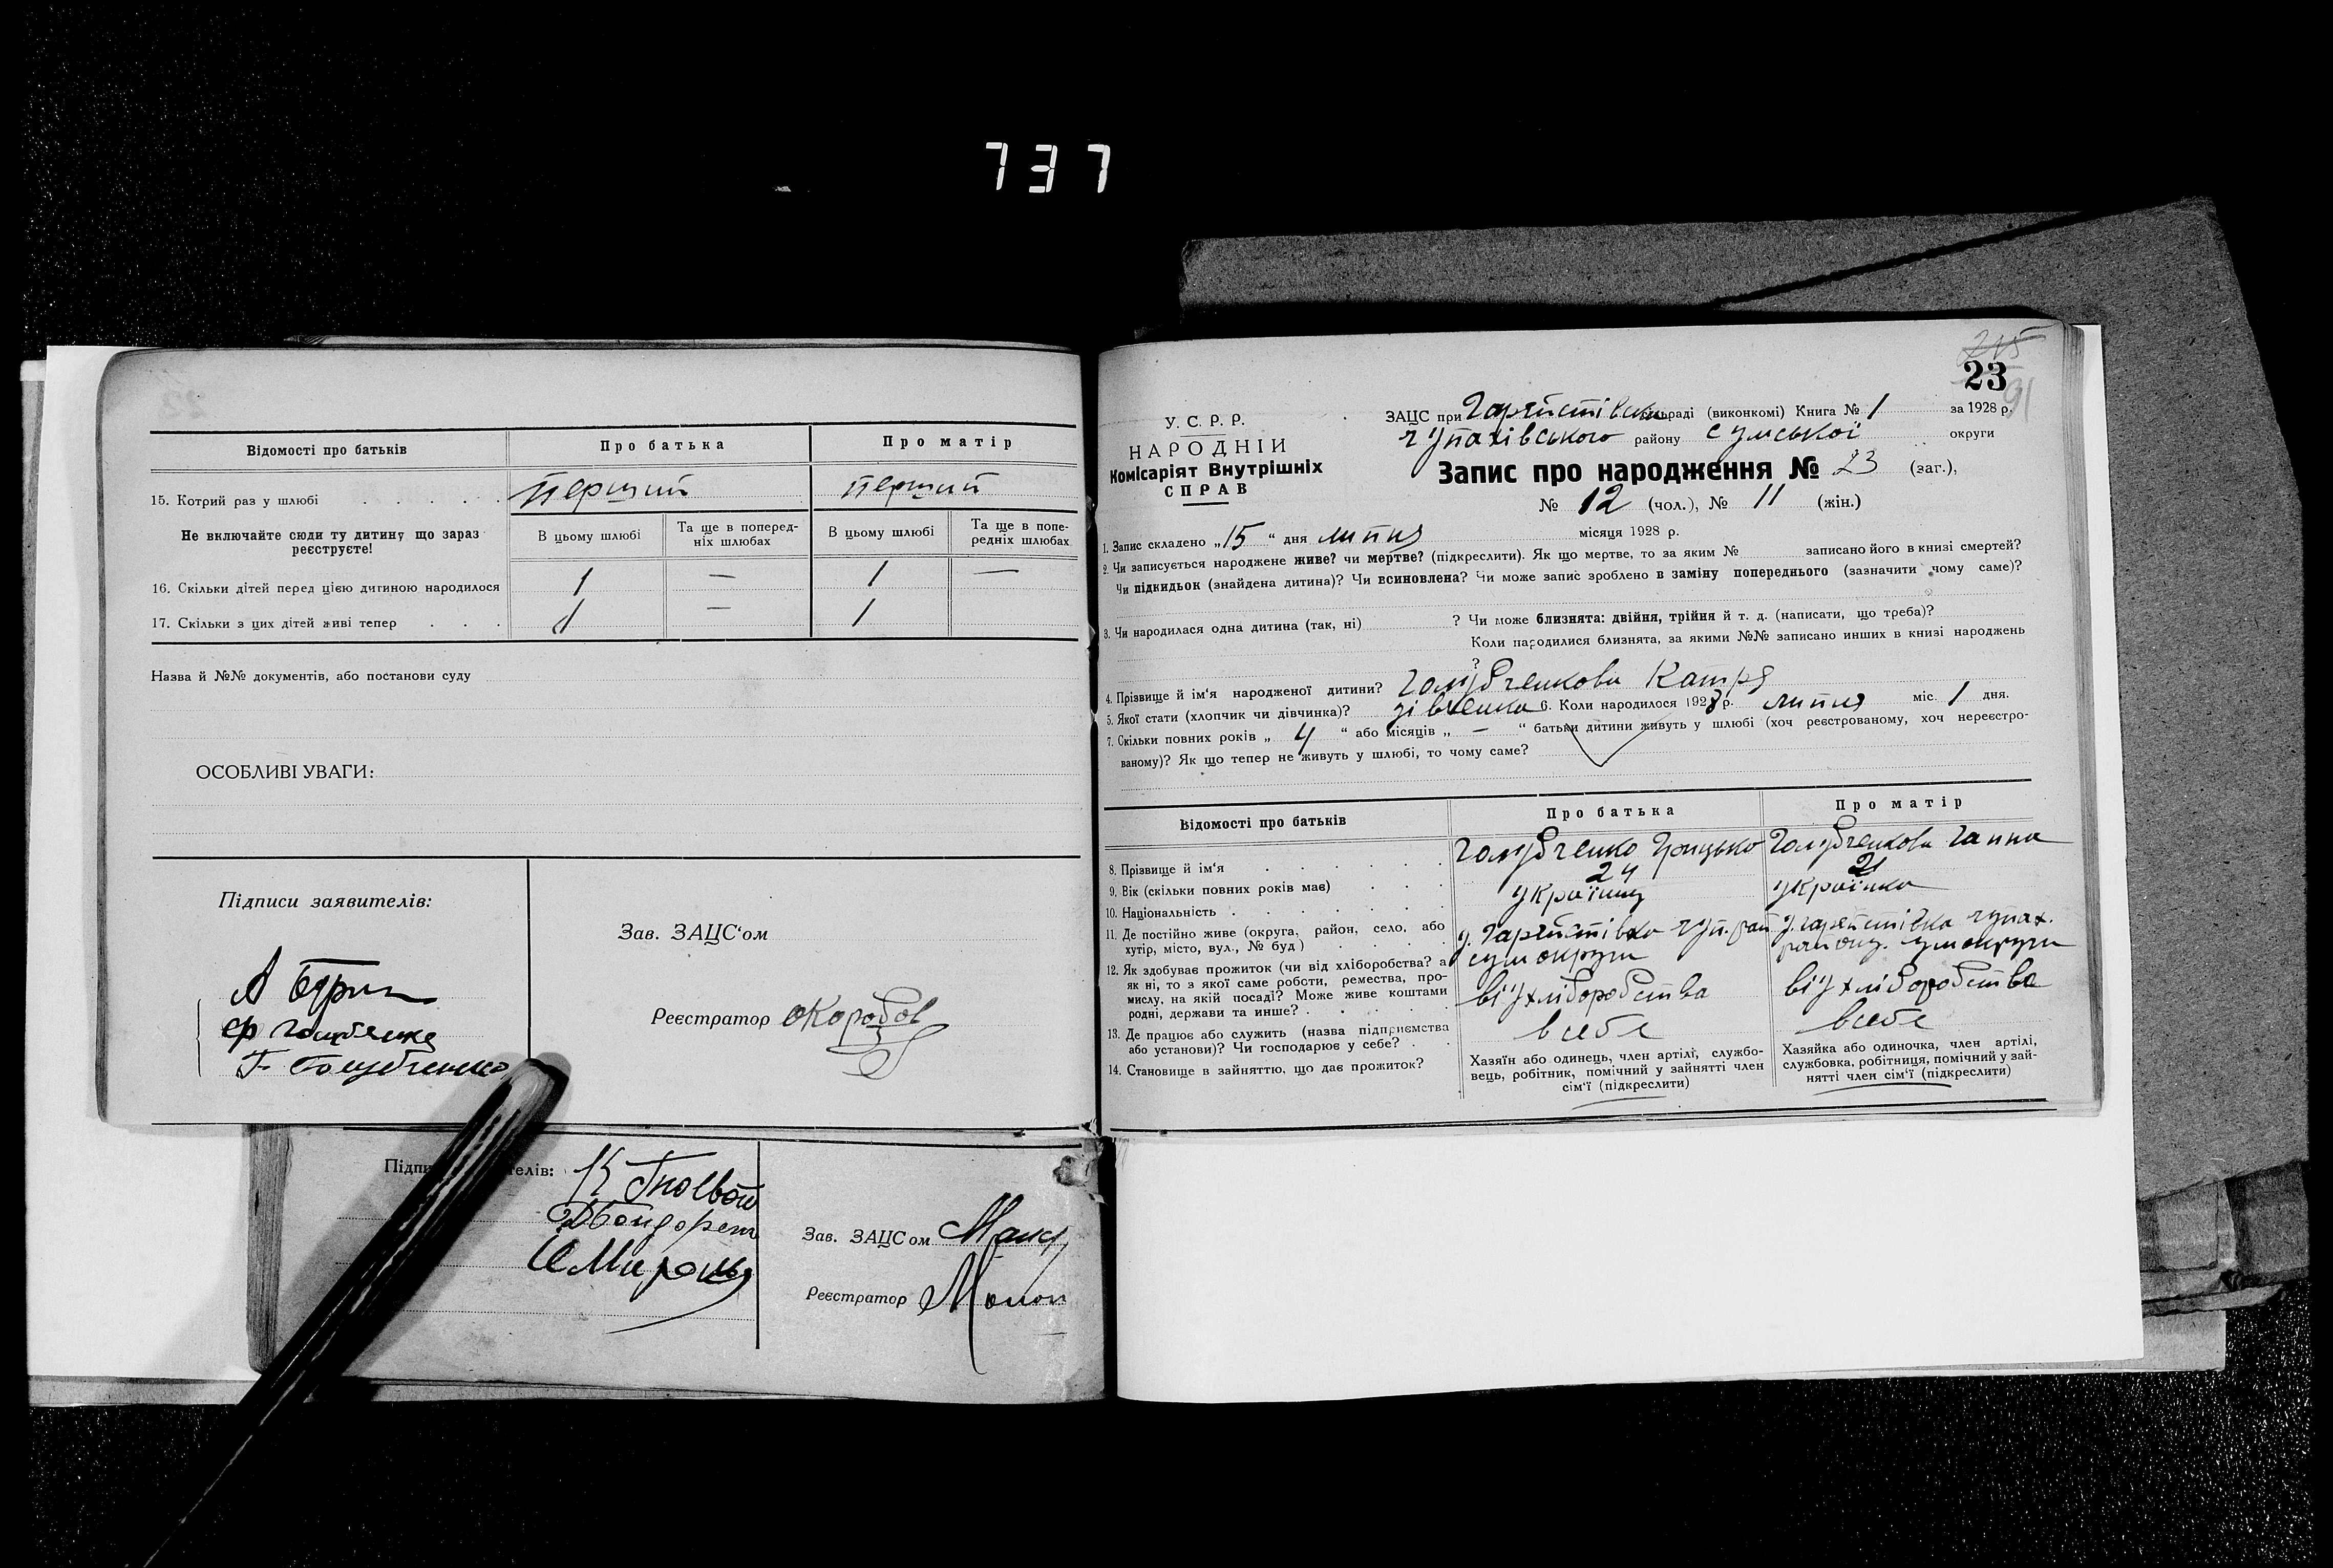 737
Відомості про батьків
Про батька
Про матір
15. Котрий раз у шлюбі
перший
перший
Не включайте сюди ту дитину що зараз реєструєте!
В цьому шлюбі
Та ще в поперед-
ніх шлюбах
В цьому шлюбі
Та ще в попе-
редніх шлюбах
16. Скільки дітей перед цією дитиною народилося
1 — 1 —
17. Скільки з цих дітей живі тепер
1 — 1
Назва й №№ документів, або постанови суду
ОСОБЛИВІ УВАГИ:
Підписи заявителів:
Г. Голубченко
Зав. ЗАЦС‘ом
Реєстратор ОКоробов
Зав. ЗАЦСом
Реєстратор
23
У. С. Р. Р.
НАРОДНІЙ
Комісаріят Внутрішніх
СПРАВ
ЗАЦС при сільраді (виконкомі) Книга № 1 за 1928 р.
Чупахівського району Сумської округи
Запис про народження № 23 (заг.),
№ 12 (чол.), № 11 (жін.)
1. Запис складено „15“ дня липня місяця 1928 р.
2. Чи записується народжене живе? чи мертве? (підкреслити). Як що мертве, то за яким № записано його в книзі смертей?
Чи підкидьок (знайдена дитина)? Чи всиновлена? Чи може запис зроблено в заміну попереднього (зазначити чому саме)?
3. Чи народилася одна дитина (так, ні) ? Чи може близнята: двійня, трійня й т. д. (написати, що треба)?
Коли народилися близнята, за якими №№ записано инших в книзі народжень
?
4. Прізвище й ім‘я народженої дитини? Голубченкова Катря
5. Якої стати (хлопчик чи дівчинка)? дівченка 6. Коли народилося 1928 р. липня міс. 1 дня.
7. Скільки повних років „ 4 “ або місяців „ — “ батьки дитини живуть у шлюбі (хоч реєстрованому, хоч нереєстро-
ваному)? Як що тепер не живуть у шлюбі, то чому саме?
Відомості про батьків
Про батька
Про матір
8. Прізвище й ім‘я
Голубченко Грицько
Голубченкова Ганна
9. Вік (скільки повних років має)
24
21
10. Національність
Українец
Українка
11. Де постійно живе (округа, район, село, або
хутір, місто, вул., № буд)
сумокруги
12. Як здобуває прожиток (чи від хліборобства? а
як ні, то з якої саме роботи, ремества, про-
мислу, на якій посаді? Може живе коштами
родні, держави та инше?
від хліборобства
від хліборобства
13. Де працює або служить (назва підприємства
або установи)? Чи господарює у себе?
в себе
в себе
14. Становище в зайняттю, що дає прожиток?
Хазяїн або одинець, член артілі, службо-
вець, робітник, помічний у зайнятті член
сім‘ї (підкреслити)
Хазяйка або одиночка, член артілі,
службовка, робітниця, помічний у зай-
нятті член сім‘ї (підкреслити)